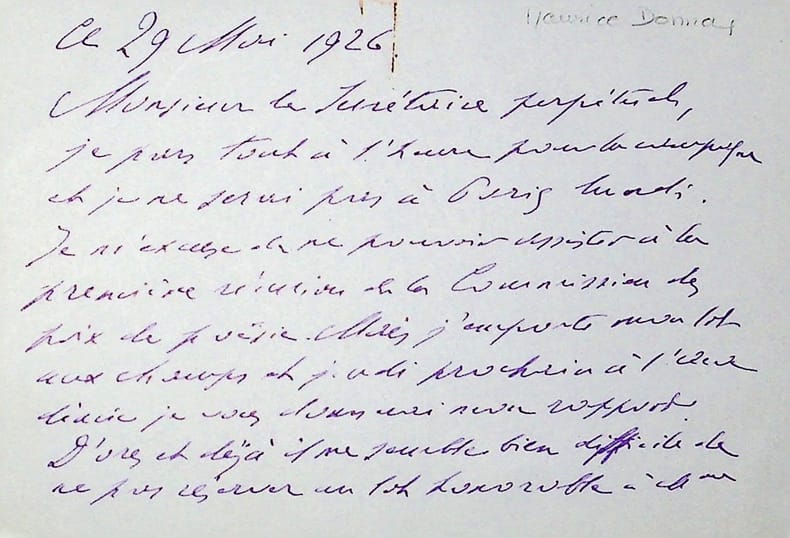 Maurice Donnay
Ce 29 Mai 1926
Monsieur le Secrétaire perpétuel,
je pars tout à l'heure pour la campagne
et je ne serai pas à Paris lundi.
Je m'excuse de ne pouvoir assister à la
première réunion de la Commission des
prix de poésie. Mais j'emporte mon lot
aux champs et jeudi prochain à l'Aca
démie je vous donnerai mon rapport.
D'ores et déjà il me semble bien difficile de
ne pas réserver un lot honorable à Mme